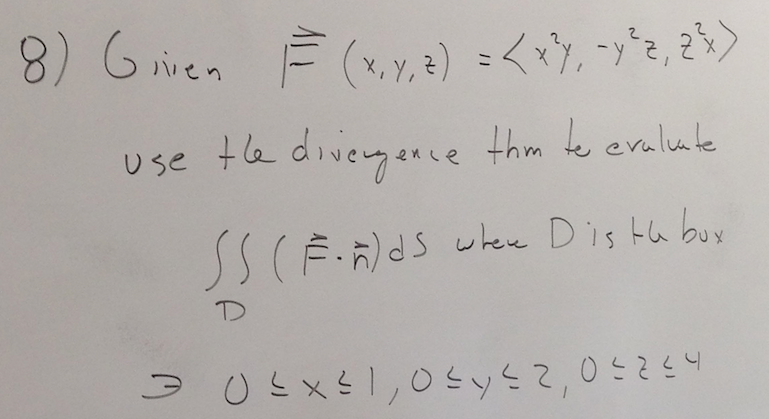 8) Given F⃗ (x, y, z) = ⟨x²y, -y²z, z²x⟩
use the divergence thm to evaluate
∬ (F⃗ · n⃗) dS where D is the box
D
∋ 0 ≤ x ≤ 1, 0 ≤ y ≤ 2, 0 ≤ z ≤ 4